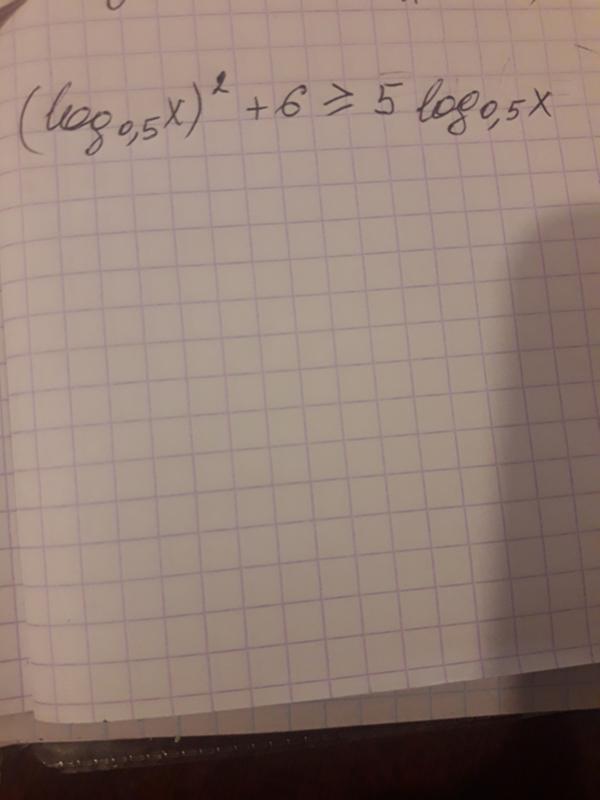 (log₀,₅x)² + 6 ≥ 5 log₀,₅x